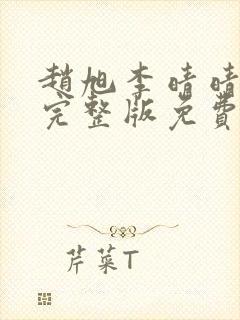 趙旭李晴晴
完整版免費
芹菜T